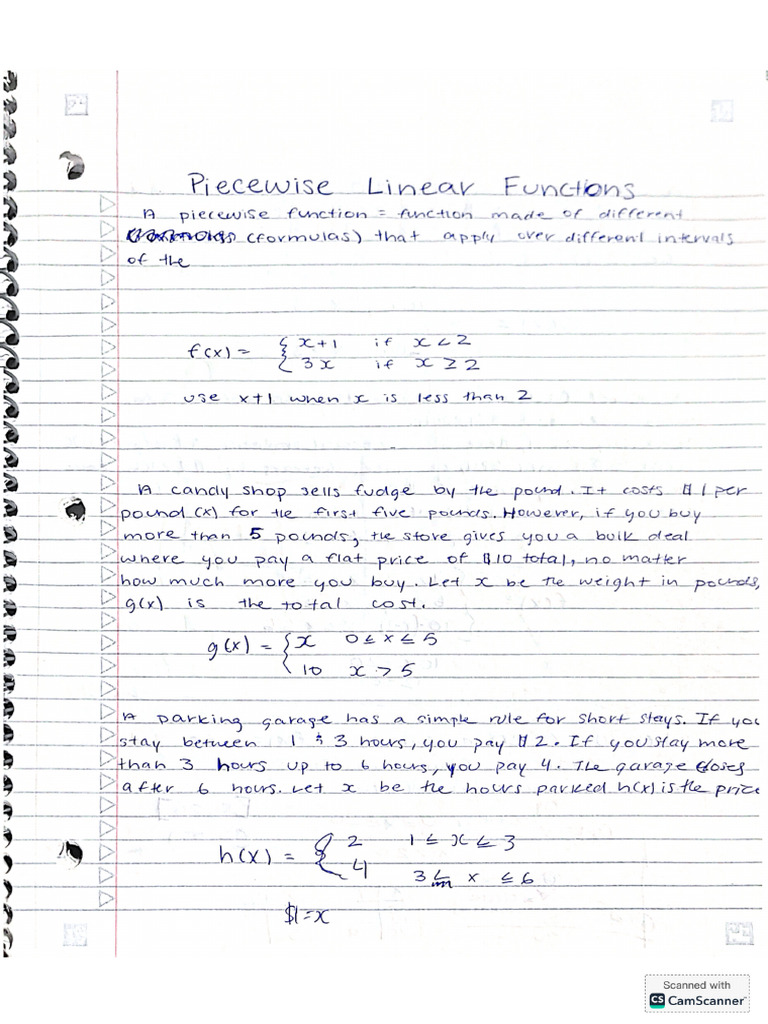 Piecewise Linear Functions
A piecewise function = function made of different
(formulas) that apply over different intervals
of the
f(x) = { x+1 if x < 2
3x if x ≥ 2
use x+1 when x is less than 2
A candy shop sells fudge by the pound. It costs $1 per
pound (x) for the first five pounds. However, if you buy
more than 5 pounds, the store gives you a bulk deal
where you pay a flat price of $10 total, no matter
how much more you buy. Let x be the weight in pounds,
g(x) is the total cost.
g(x) = { x 0 ≤ x ≤ 5
10 x > 5
A parking garage has a simple rule for short stays. If you
stay between 1 & 3 hours, you pay $2. If you stay more
than 3 hours up to 6 hours, you pay 4. The garage closes
after 6 hours. Let x be the hours parked h(x) is the price
h(x) = { 2 1 ≤ x ≤ 3
4 3 < x ≤ 6
$1 = x
Scanned with
CS CamScanner